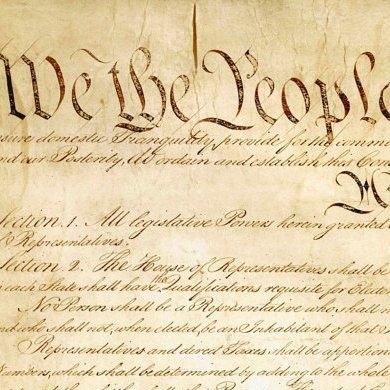 We the People
sure domestic Tranquility, provide for the commo
and our Posterity, do ordain and establish this Con
Section. 1. All legislative Powers herein granted
of Representatives.
Section. 2. The House of Representatives shall be
each State shall have the Qualifications requisite for Elector
No Person shall be a Representative who shall not
and who shall not, when elected, be an Inhabitant of that
Representatives and direct Taxes shall be apportion
Numbers, which shall be determined by adding to the whole